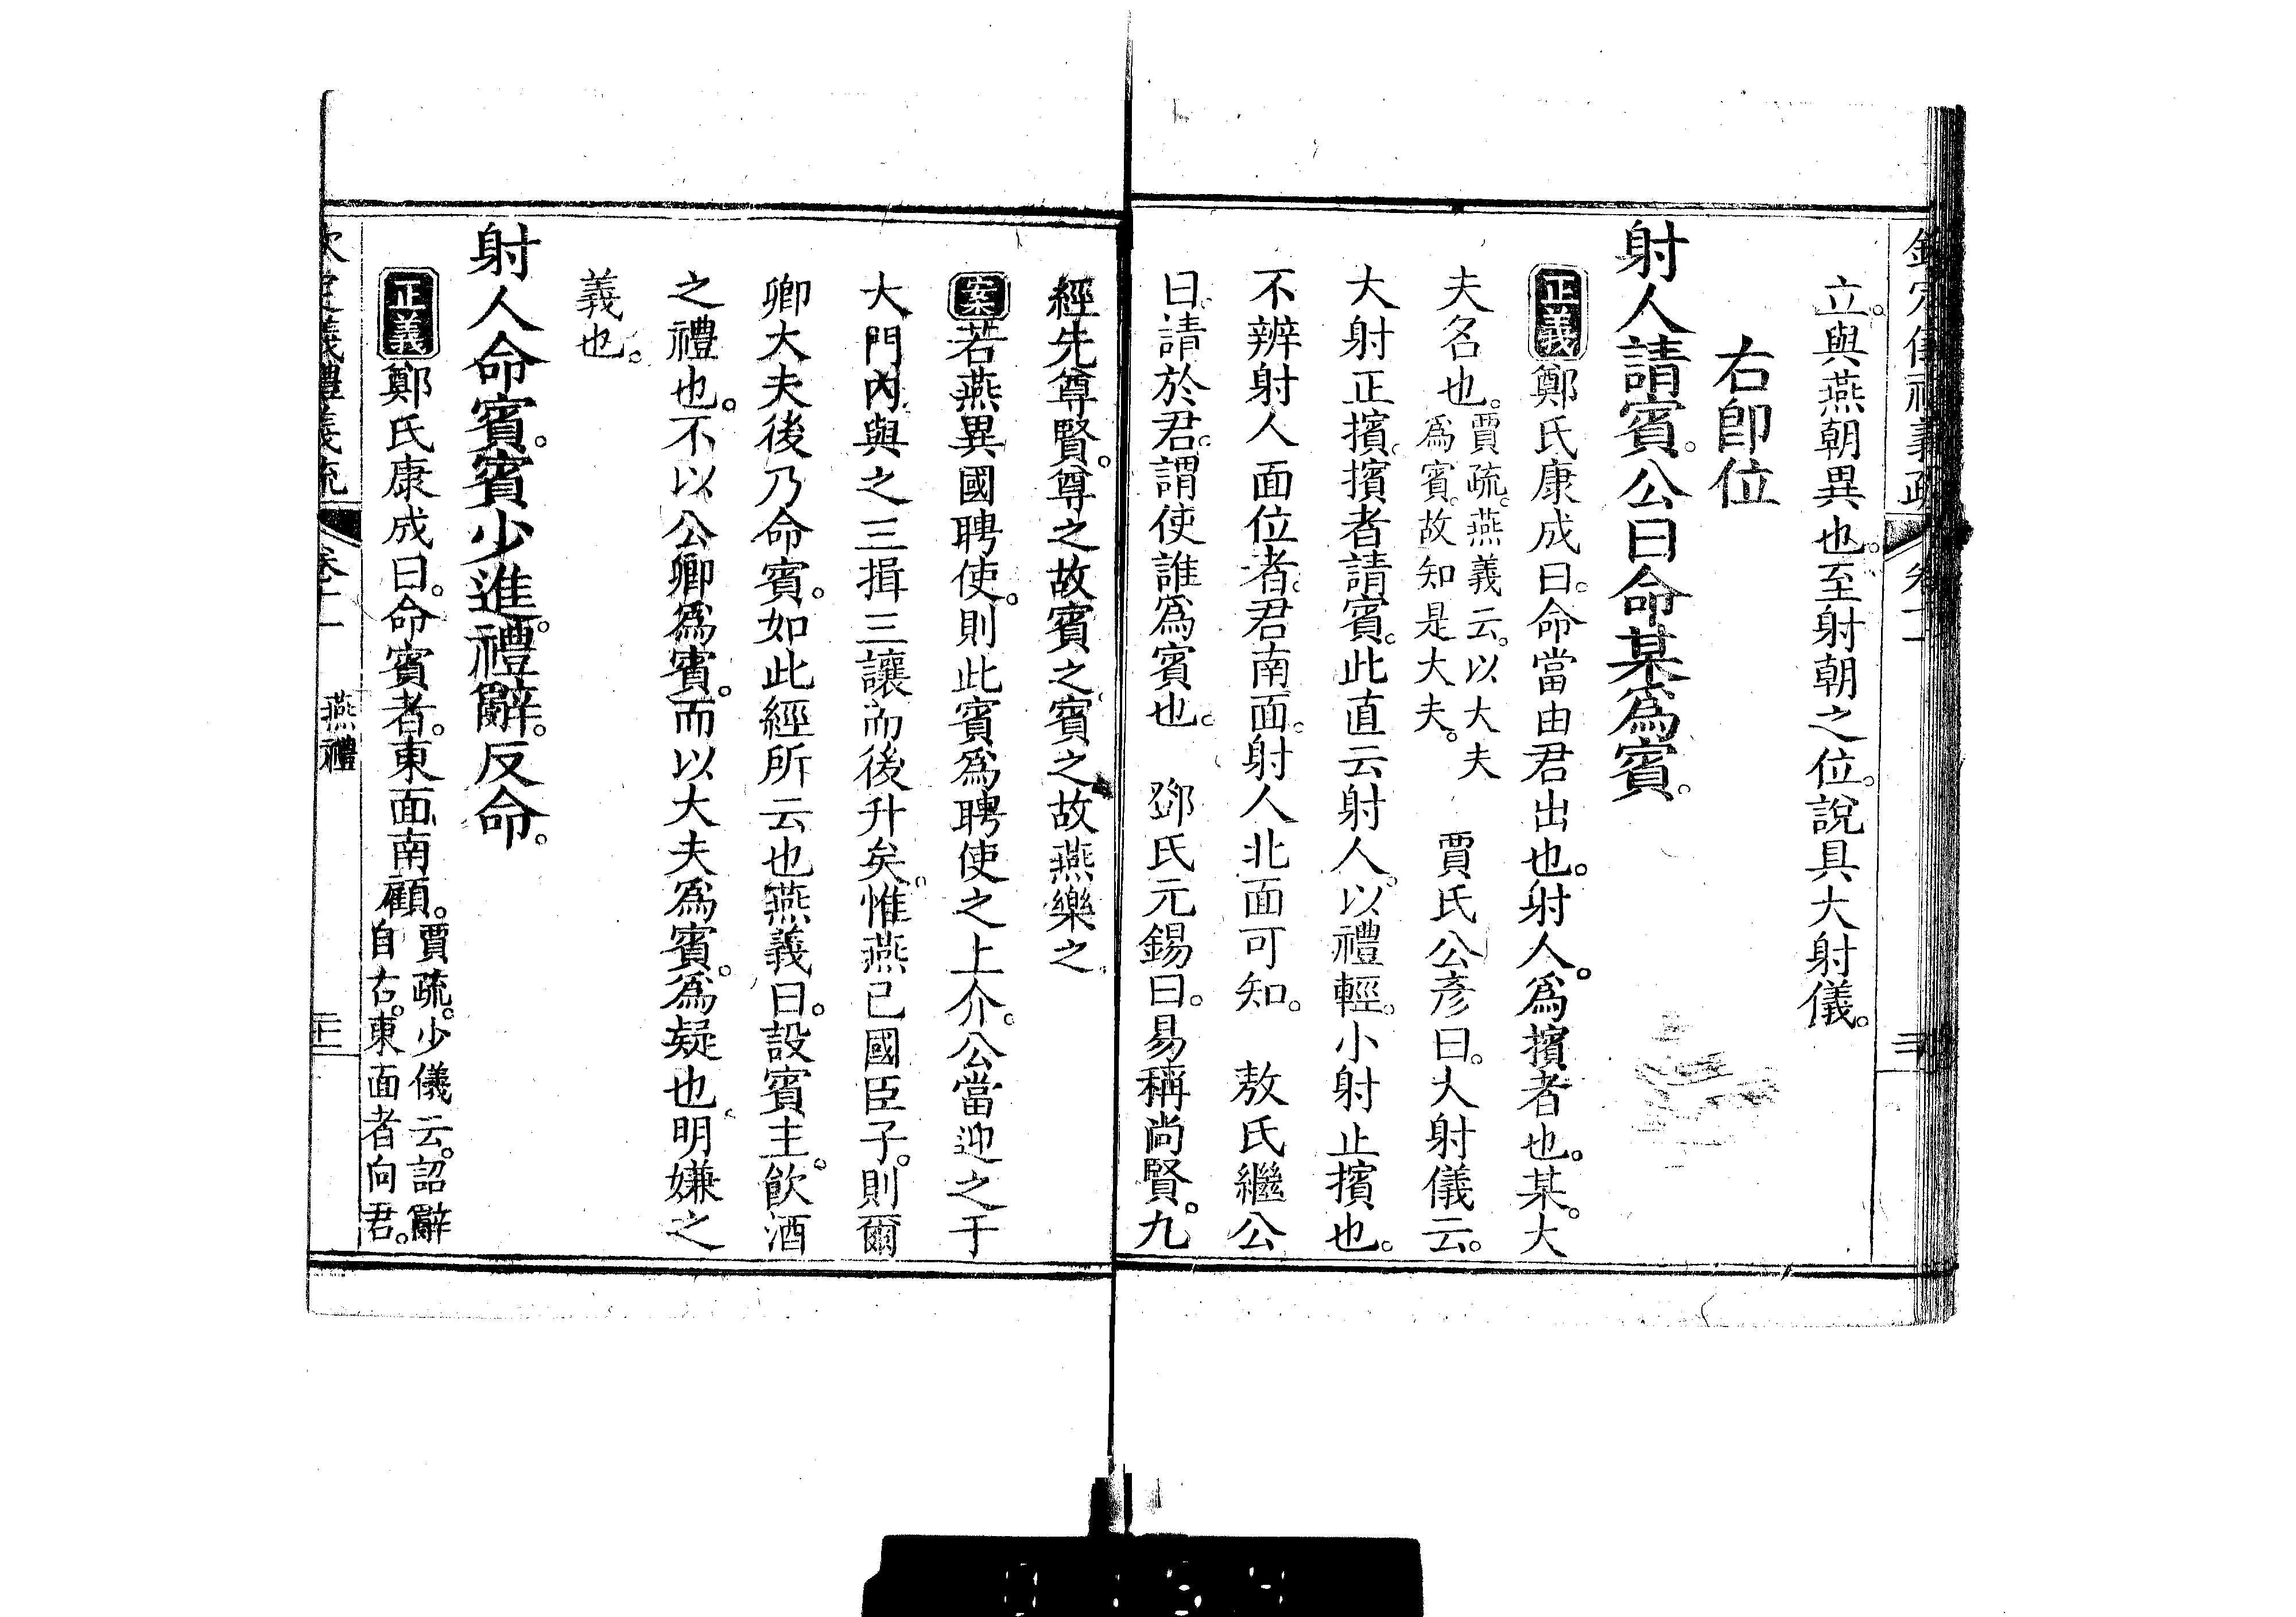 立。與燕朝異也。至射朝之位。說具大射儀。
右卽位
射人請賓。公曰命某爲賓。
正義鄭氏康成曰。命當由君出也。射人。爲擯者也。某。大
夫名也。賈疏。燕義云。以大夫
爲賓。故知是大夫。 賈氏公彥曰。大射儀云。
大射正擯。擯者請賓。此直云射人。以禮輕。小射止擯也。
不辨射人面位者。君南面。射人北面可知。 敖氏繼公
曰。請於君。謂使誰爲賓也。 鄧氏元錫曰。易稱尚賢。九
經先尊賢。尊之故賓之。賓之故燕樂之
案若燕異國聘使。則此賓爲聘使之上介。公當迎之于
大門內。與之三揖三讓而後升矣。惟燕已國臣子。則爾
卿大夫後乃命賓。如此經所云也燕義曰。設賓主。飮酒
之禮也。不以公卿爲賓。而以大夫爲賓。爲疑也。明嫌之
義也。
射人命賓。賓少進。禮辭。反命。
正義鄭氏康成曰。命賓者。東面南顧。賈疏。少儀云。詔辭
自右。東面者向君。
燕禮